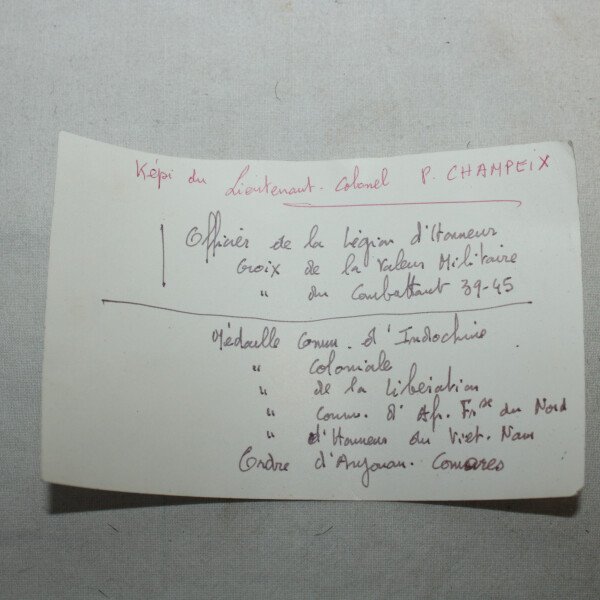 Képi du Lieutenant. Colonel P. CHAMPEIX
Officier de la Légion d'Honneur
Croix de la Valeur Militaire
" du Combattant 39-45
Médaille Comm. d'Indochine
" Coloniale
" de la Libération
" Comm. d'Afr. Frse du Nord
" d'Honneur du Viet. Nam
Ordre d'Anjouan. Comores